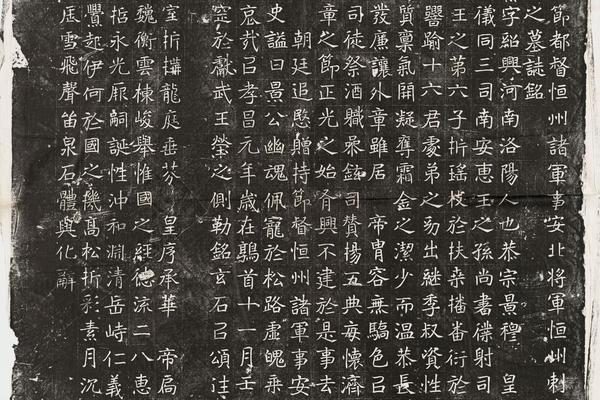 節都督恒州諸軍事安北将軍恒州刺
之墓誌銘
字紹興河南洛陽人也恭宗景穆 皇
儀同三司南安惠王之孫尚書僕射司
王之第六子折瑤枝於扶桒播番衍於
譽踰十六君弟之出継季叔資性
質稟氣開凝奪霜金之潔少而溫恭長
發廉讓外章雖居 帝胄容無驕色㠯
司徒祭酒軄鉉司賛揚五典每懷濟
章之節正光之始脅興不建於是事去
朝廷追愍贈持節督恒州諸軍事安
史謚曰景公幽魂佩寵於松路虛魄乘
哀哉㠯孝昌元年歲在鶉首十一月壬
窆於獻武王塋之側勒銘玄石㠯頌往
室折構龍庭垂芬 皇序承華 帝局
魏衡雲棟峻舉惟國之經德流二八惠
招永光厥嗣誕性沖和淵清岳峙仁義
釁起伊何於國之機高松折彩素月沉
雪飛聲笛泉石體與化辭